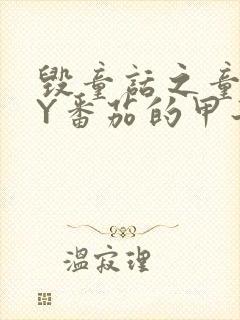 毁童话之童
Y番茄的甲
温寂理